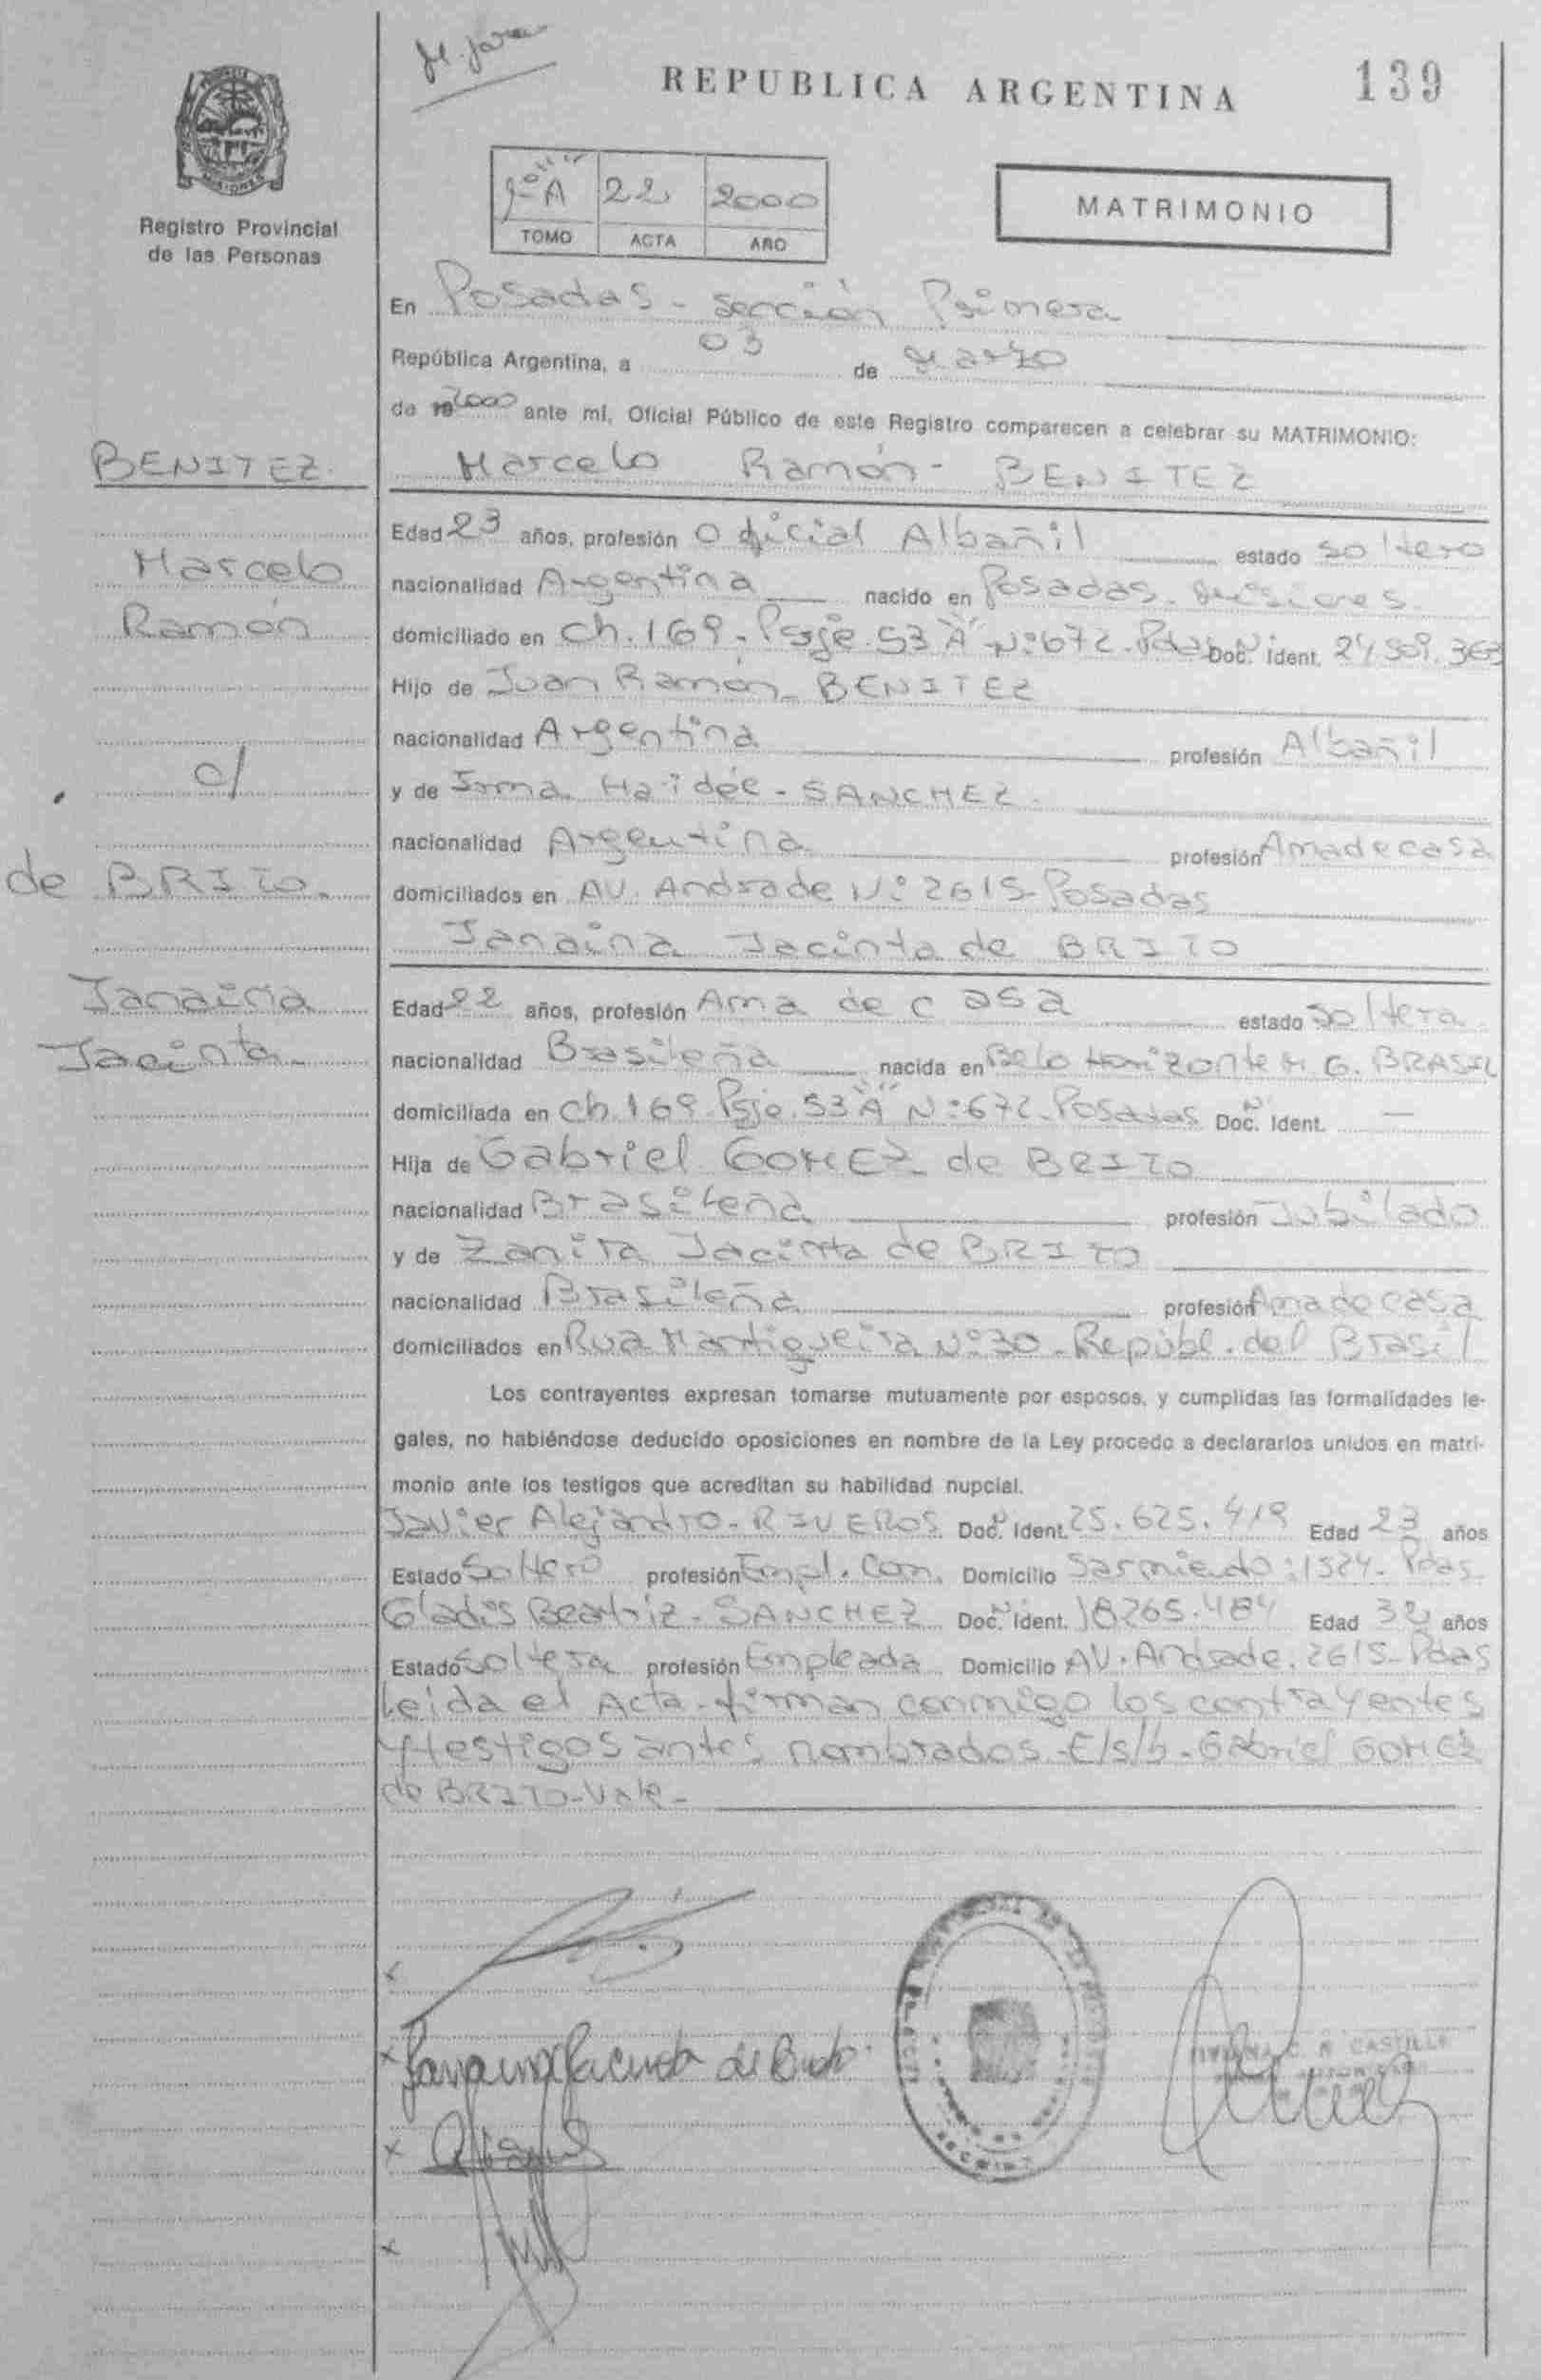 REPUBLICA ARGENTINA
139
MISIONES
Registro Provincial
de las Personas
1º A 22 2000
TOMO ACTA AÑO
MATRIMONIO
En Posadas - Sección Primera
República Argentina, a 03 de Marzo
de 19 2000 ante mí, Oficial Público de este Registro comparecen a celebrar su MATRIMONIO:
BENITEZ
Marcelo Ramón - BENITEZ
Edad 23 años, profesión Oficial Albañil estado soltero
Marcelo
nacionalidad Argentina nacido en Posadas - Misiones
Ramón
domiciliado en Ch. 169 - Psje. 53 "A" Nº 672 - Pdas Doc. Ident.
Hijo de Juan Ramón - BENITEZ
nacionalidad Argentina profesión Albañil
c/
y de Irma Haidée - SANCHEZ
nacionalidad Argentina profesión Ama de casa
de BRITO
domiciliados en AV. Andrade Nº 2615 - Posadas
Janaina Jacinta de BRITO
Janaina
Edad 22 años, profesión Ama de casa estado soltera
Jacinta
nacionalidad Brasileña nacida en Belo Horizonte M. G. BRASIL
domiciliada en Ch. 169 - Psje. 53 "A" Nº 672 - Posadas Doc. Ident. —
Hija de Gabriel GOMEZ de BRITO
nacionalidad Brasileña profesión Jubilado
y de Zanita Jacinta de BRITO
nacionalidad Brasileña profesión Ama de casa
domiciliados en Rua Mantigueira Nº 30 - Repúbl. del Brasil
Los contrayentes expresan tomarse mutuamente por esposos, y cumplidas las formalidades le-
gales, no habiéndose deducido oposiciones en nombre de la Ley procedo a declararlos unidos en matri-
monio ante los testigos que acreditan su habilidad nupcial.
Javier Alejandro - RIVEROS Doc. Ident. 25.625.419 Edad 23 años
Estado Soltero profesión Empl. Com. Domicilio Sarmiento: 1524 - Pdas
Gladis Beatriz - SANCHEZ Doc. Ident. 18265.484 Edad 32 años
Estado Soltera profesión Empleada Domicilio AV. Andrade. 2615 - Pdas
Leida el Acta - firman conmigo los contrayentes
y testigos antes nombrados - E/s/b - Gabriel GOMEZ
de BRITO - Vale -
Janaina Jacinta de Brito
C. R CASTILLO